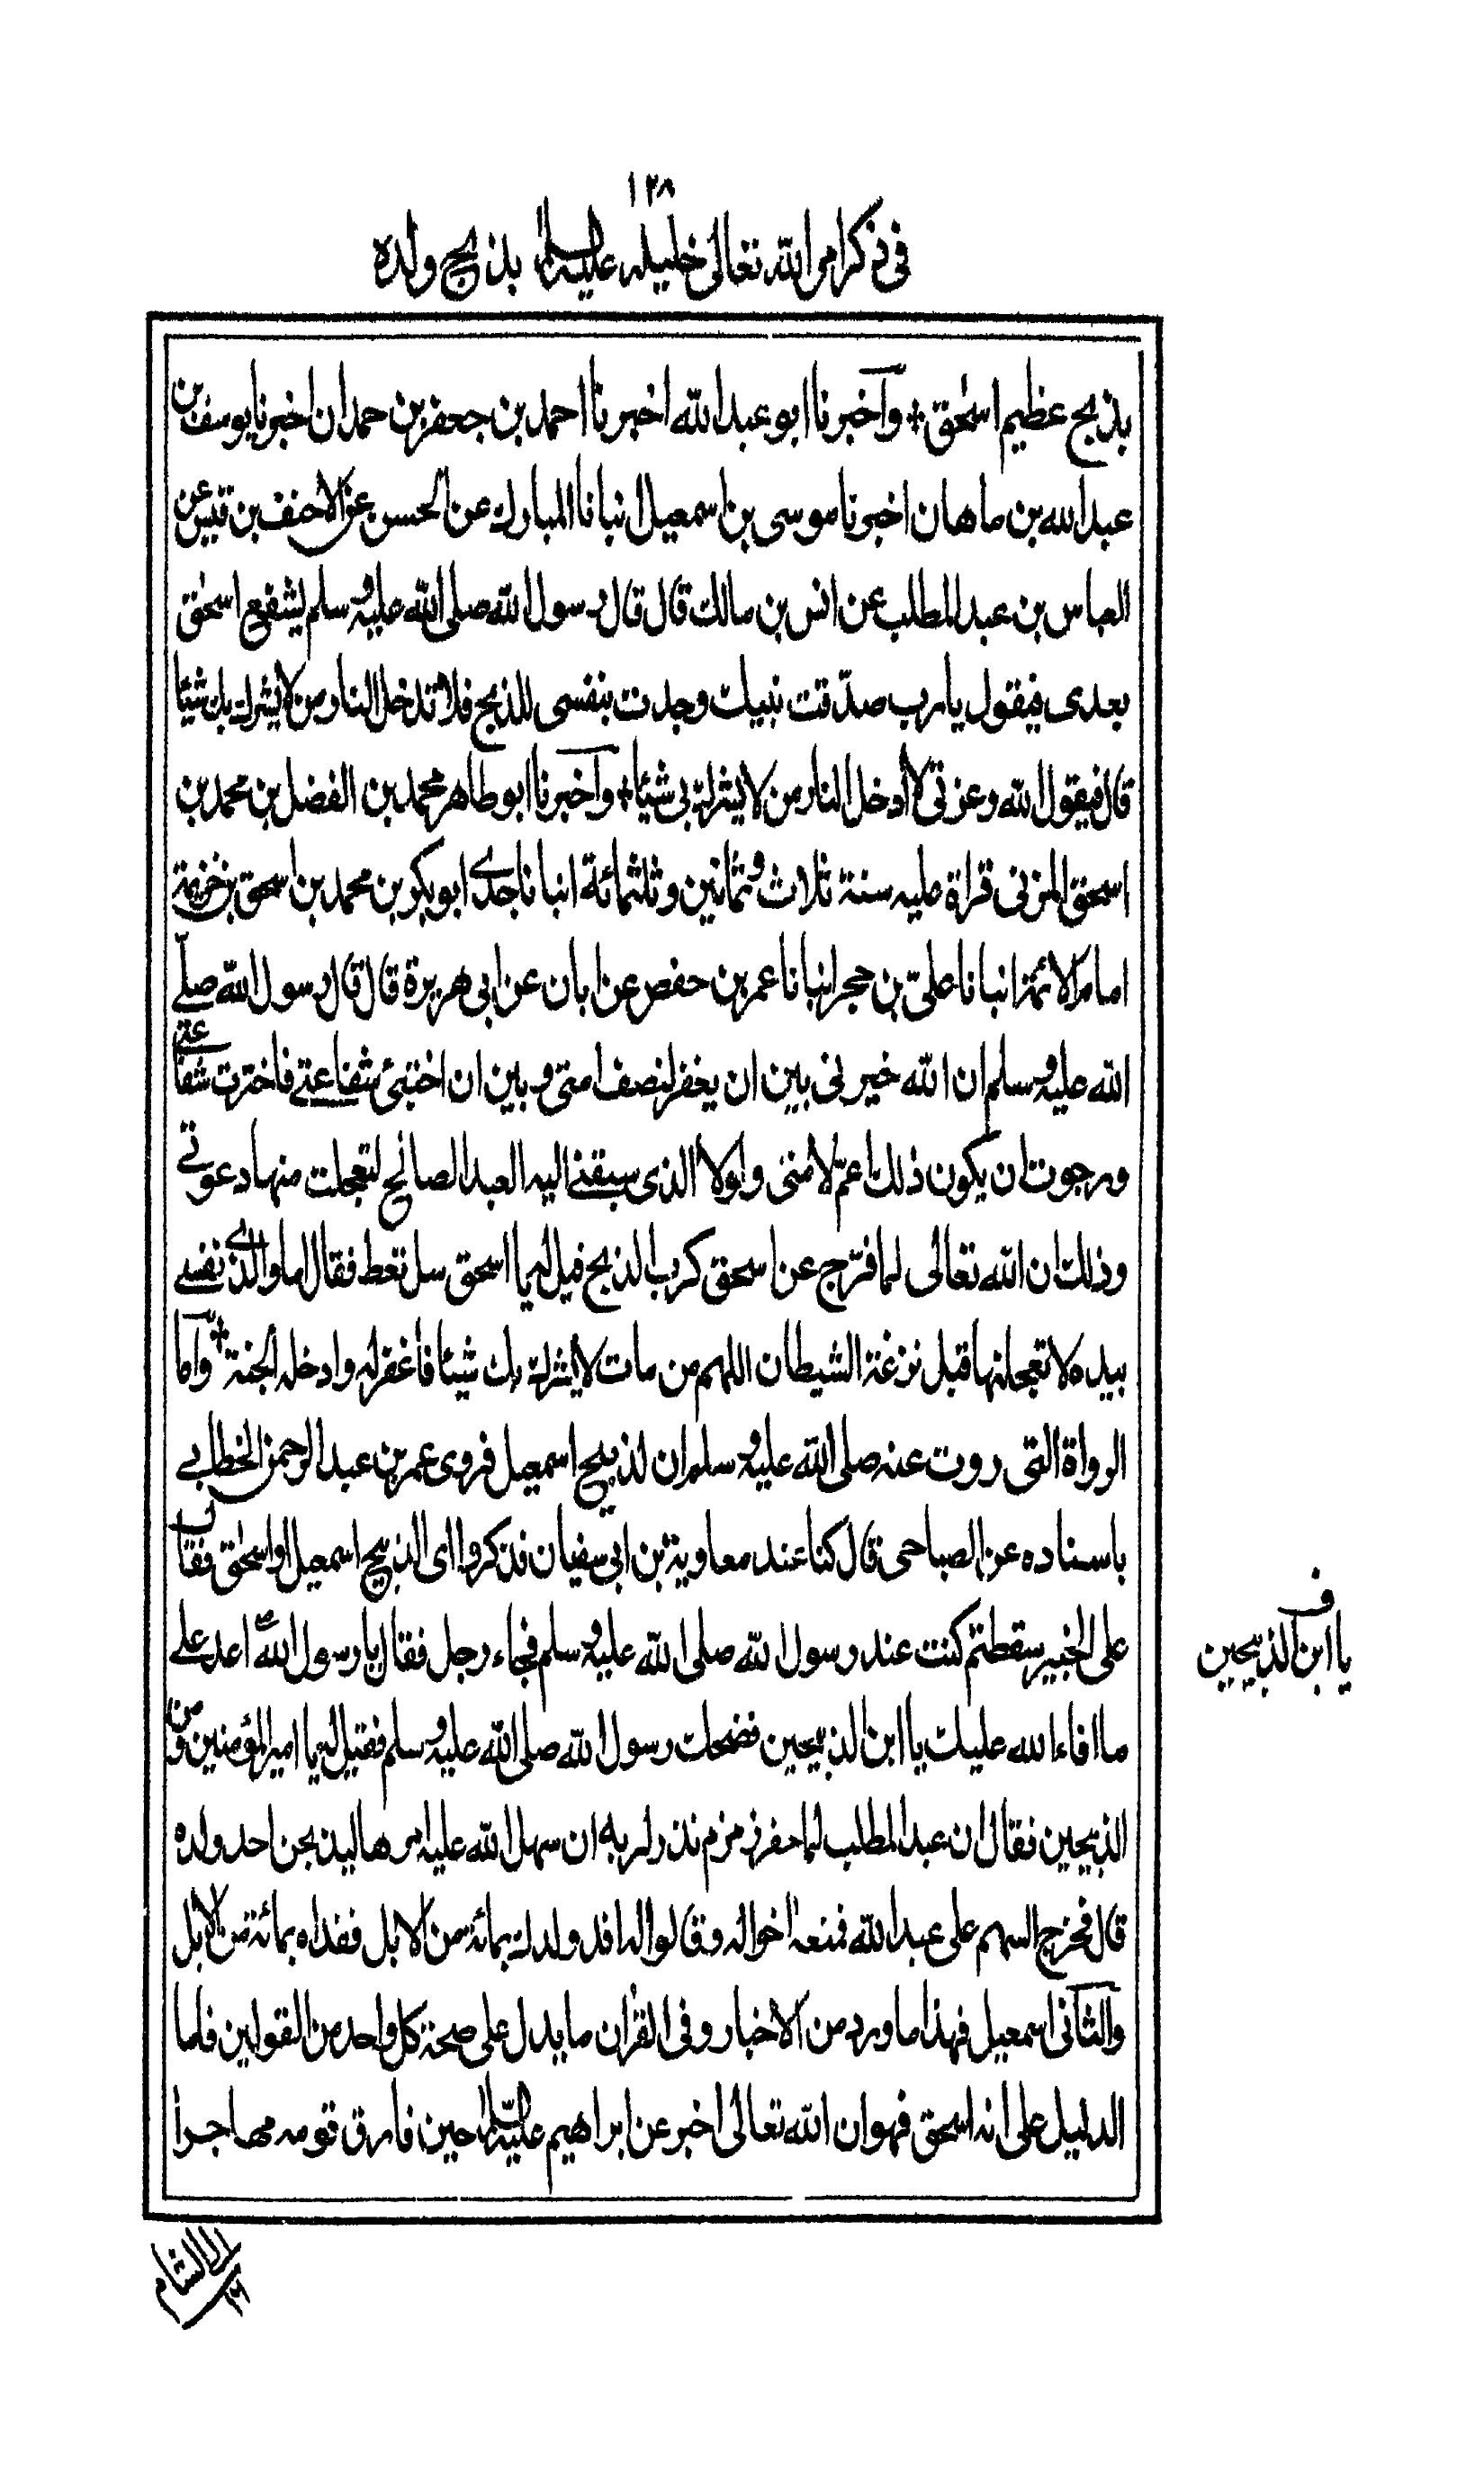 ١٢٨
فى ذكر امر الله تعالى خليله عليه السلام بذبح ولده
بذبح عظيم اسحٰق + وآخبرنا ابو عبد الله اخبرنا احمد بن جعفر بن حمدان اخبرنا يوسف بن
عبد الله بن ماهان اخبرنا موسى بن اسمعيل انبانا المبارك عن الحسن عن الاحنف بن قيس عن
العباس بن عبد المطلب عن انس بن مالك قال قال رسول الله صلى الله عليه وسلم يشفع اسحٰق
بعدى فيقول يا رب صدّقت نبيك وجدت بنفسى للذبح فلا تدخل النار من لا يشرك بك شيئا
قال فيقول الله وعزتى لا أدخل النار من لا يشرك بى شيئا + وآخبرنا ابو طاهر محمد بن الفضل بن محمد بن
اسحق المزنى قراة عليه سنة ثلاث وثمانين وثلثمائة انبانا جدى ابو بكر بن محمد بن اسحق بن خزيمة
امام الائمة انبانا على بن حجر انبانا عمر بن حفص عن ابان عن ابى هريرة قال قال رسول الله صلى
الله عليه وسلم ان الله خيرنى بين ان يغفر لنصف امتى وبين ان اختبئ شفاعتى فاخترت شفاعتى
ورجوت ان يكون ذلك اعمّ لامتى ولولا الذى سبقنى اليه العبد الصالح لتعجلت منها دعوتى
وذلك ان الله تعالى لما فرّج عن اسحق كرب الذبح قيل له يا اسحق سل تعط فقال اما والذى نفسى
بيده لا تعجلنها قبل نزغة الشيطان اللهم من مات لا يشرك بك شيئا فاغفر له وادخله الجنة + وآما
الرواة التى روت عنه صلى الله عليه وسلم ان الذبيح اسمعيل فروى عمر بن عبد الرحمن الخطابى
باسناده عن الصباحى قال كنا عند معاوية بن ابى سفيان فذكروا اى الذبيح اسمعيل او اسحٰق فقال
على الخبير سقطتم كنت عند رسول الله صلى الله عليه وسلم فجاء رجل فقال يا رسول الله ص اعد على
ما افاء الله عليك يا ابن الذبيحين فضحك رسول الله صلى الله عليه وسلم فقيل له يا امير المؤمنين ومن
الذبيحين فقال ان عبد المطلب لما حفر زمزم نذر لربه ان سهل الله عليه امرها ليذبحن احد ولده
قال فخرج السهم على عبد الله فمنعه اخواله وقالوا له افد ولدك بمائة من الابل ففداه بمائة من الابل
وآلثانى اسمعيل فهذا ما ورد من الاخبار وفى القرٰان ما يدل على صحة كل واحد من القولين فاما
الدليل على انه اسحق فهو ان الله تعالى اخبر عن ابراهيم عليه السلام حين فارق قومه مهاجرا
ف
يا ابن الذبيحين
الى الشام